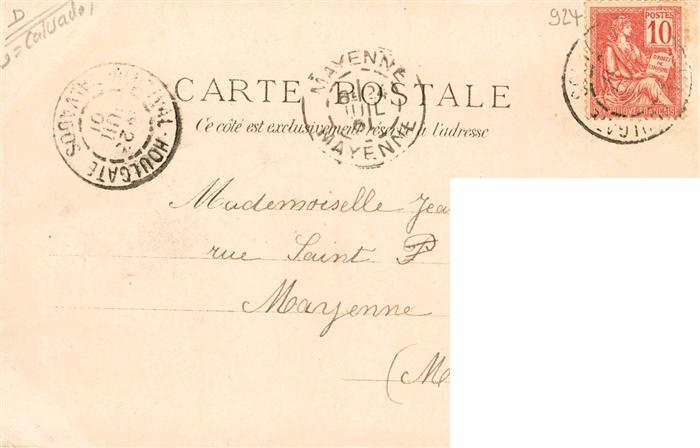 D
= Calvados
924
POSTES
10
DROITS DE L'HOMME
CARTE POSTALE
Ce côté est exclusivement réservé à l'adresse
MAYENNE
JUIL
MAYENNE
HOULGATE
CALVADOS
JUIL
01
Mademoiselle Jea
rue Saint P
Mayenne
(M